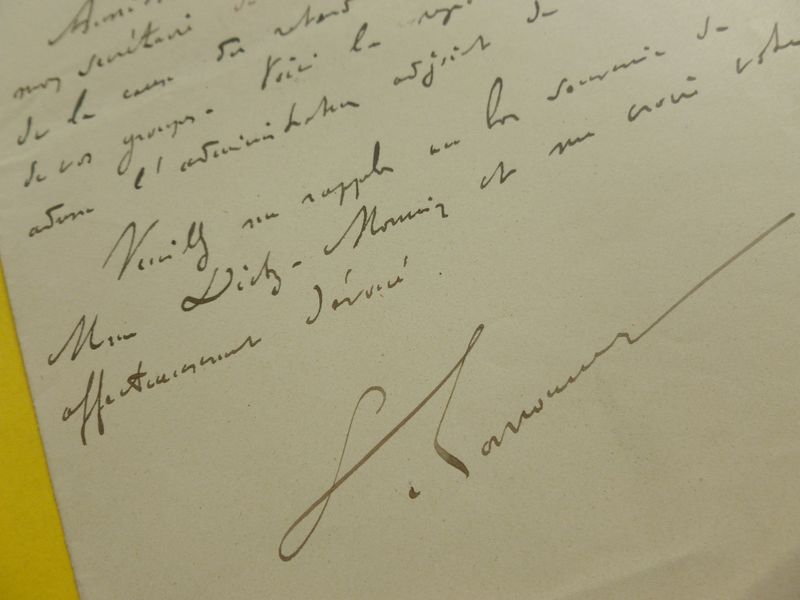 mon secrétaire
de la cause du retard
de vos groupes. Voici la
adresse l'administrateur adjoint de
Veuillez me rappeler au bon souvenir de
Mme Dietz-Monnin et me croire votre
affectueusement dévoué.
G. Larroumet